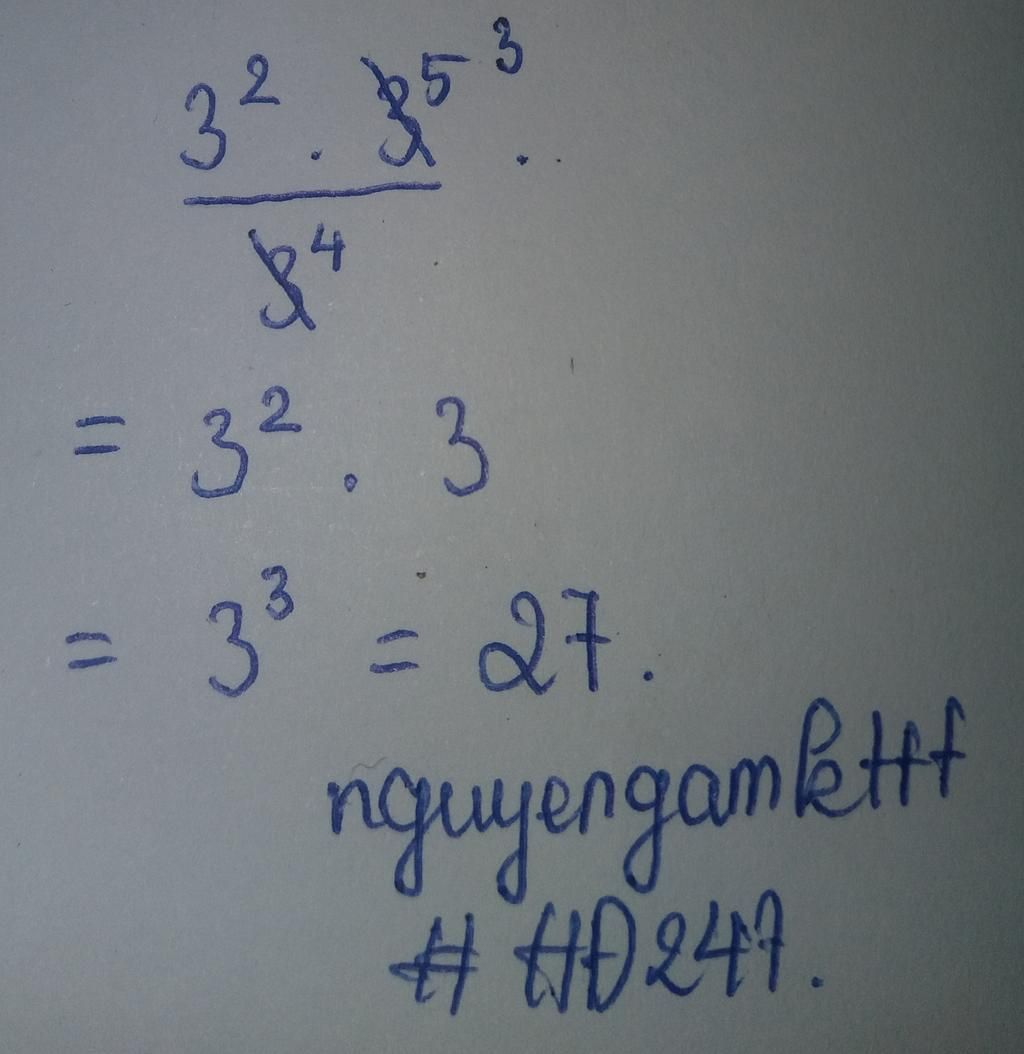 3² . 3⁵ ³ .
3⁴
= 3² . 3
= 3³ = 27.
nguyengamktHf
# HĐ247.